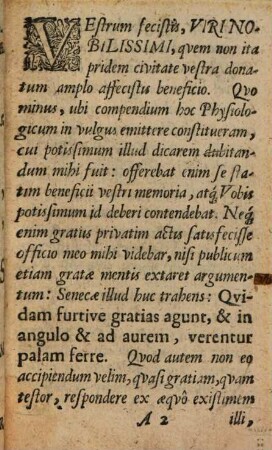 VEstrum fecistis, VIRI NO-
BILISSIMI, qvem non ita
pridem civitate vestra dona-
tum amplo affecistis beneficio. Qvo
minus, ubi compendium hoc Physiolo-
gicum in vulgus emittere constitueram,
cui potissimum illud dicarem dubitan-
dum mihi fuit: offerebat enim se sta-
tim beneficii vestri memoria, atq; Vobis
potissimum id deberi contendebat. Neq;
enim gratius privatim actus satisfecisse
officio meo mihi videbar, nisi publicum
etiam gratæ mentis extaret argumen-
tum: Senecæ illud huc trahens: Qvi-
dam furtive gratias agunt, & in
angulo & ad aurem, verentur
palam ferre. Qvod autem non eo
accipiendum velim, qvasi gratiam, qvam
testor, respondere ex æqvô existimem
A 2 illi,